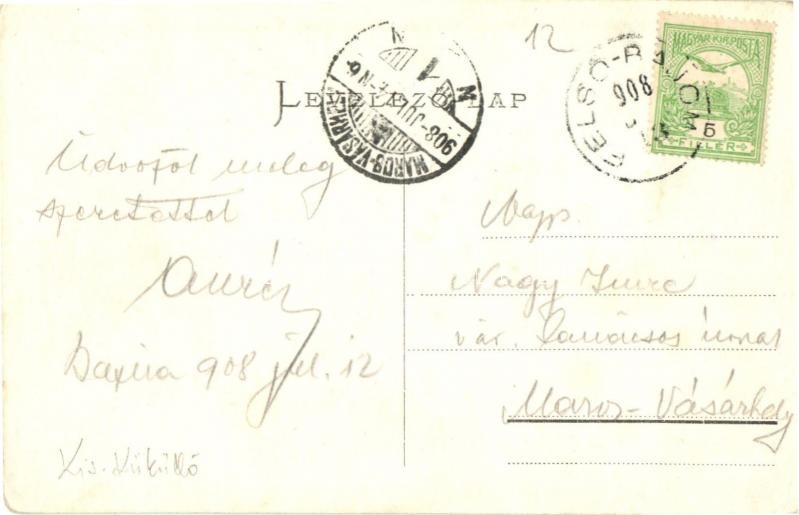 12
LEVELEZŐ-LAP
MAROS-VÁSÁRHELY
908 JUL
N
M
FELSŐ-BAJOM
908
MAGYAR KIR. POSTA
5
FILLÉR
Üdvözöl meleg
szeretettel
908 júl. 12
Kis-Küküllő
Nagy Imre
vár. Tanácsos úrnak
Maros-Vásárhely